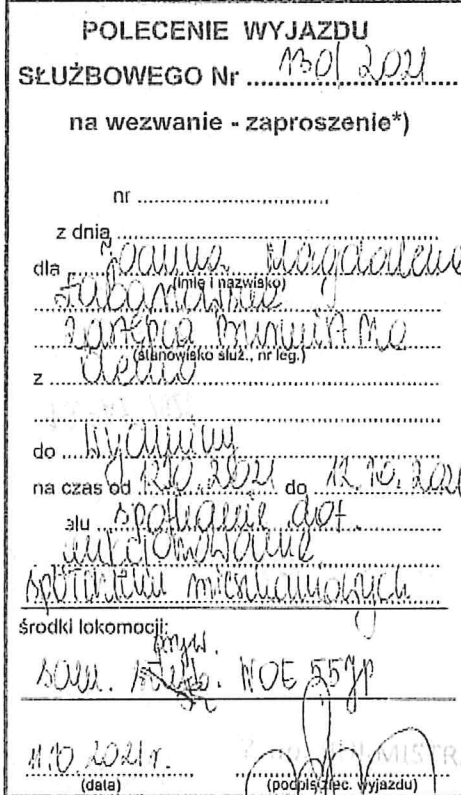 POLECENIE WYJAZDU
SŁUŻBOWEGO Nr 130/2021
na wezwanie - zaproszenie*)
nr
z dnia
dla Joanna Magdalena
(imię i nazwisko)
Zastępca Burmistrza
(stanowisko służ., nr leg.)
z
do
na czas od 12.10.2021 do 12.10.2021
elu spotkanie dot.
spółdzielni mieszkaniowych
środki lokomocji:
pryw.
sam. NOE 55JP
11.10.2021r.
(data) (podpis zlec. wyjazdu)